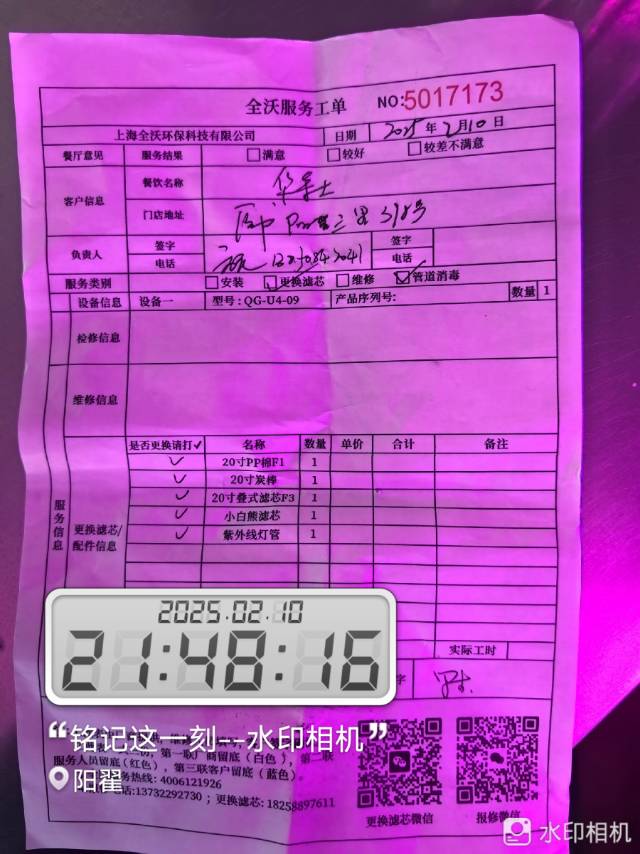 全沃服务工单 NO:5017173
上海全沃环保科技有限公司 日期 2025年2月10日
餐厅意见 服务结果 满意 较好 较差不满意
客户信息 餐饮名称
门店地址
负责人 签字 签字
电话 电话
服务类别 安装 更换滤芯 维修 管道消毒
设备信息 设备一 型号:QG-U4-09 产品序列号: 数量 1
检修信息
维修信息
服务信息 更换滤芯/配件信息 是否更换请打✓ 名称 数量 单价 合计 备注
✓ 20寸PP棉F1 1
✓ 20寸炭棒 1
✓ 20寸叠式滤芯F3 1
✓ 小白熊滤芯 1
✓ 紫外线灯管 1
实际工时
2025.02.10
21:48:16
字
“铭记这一刻-水印相机”
第一联厂商留底(白色),第二联
服务人员留底(红色),第三联客户留底(蓝色)。
阳翟
务热线: 4006121926
电话:13732292730 ; 更换滤芯: 18258897611
更换滤芯微信 报修微信
水印相机